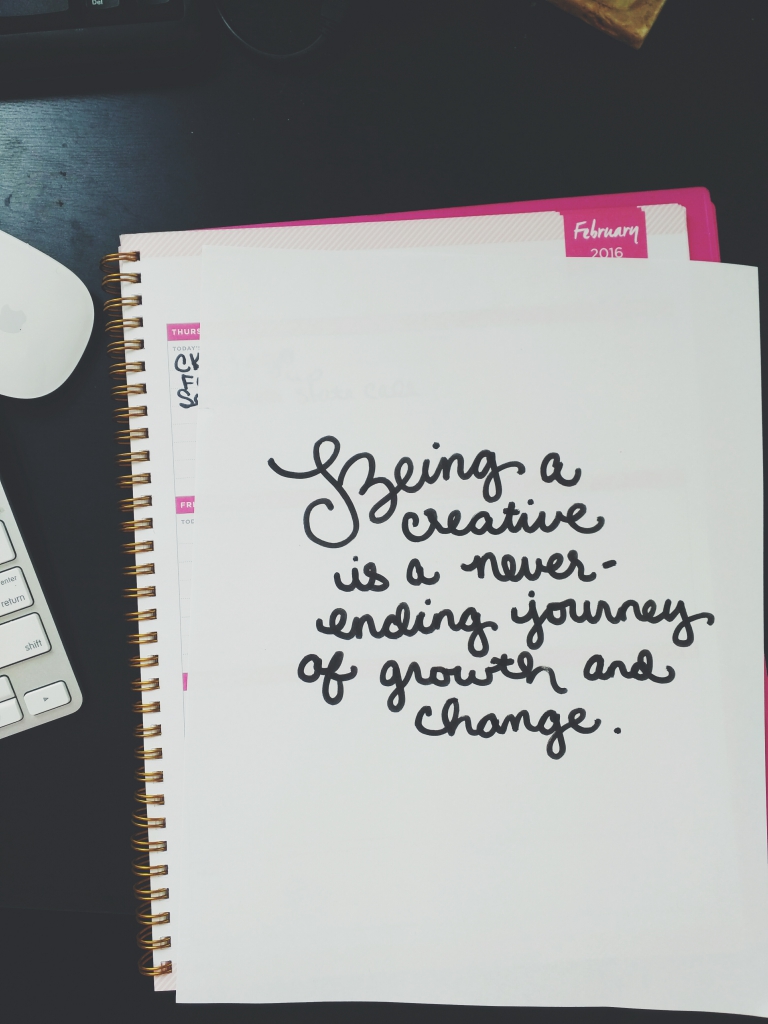 February
2016
THURS
TODAY'
FRI
TOD
Being a
creative
is a never-
ending journey
of growth and
change.
enter
return
shift
Del